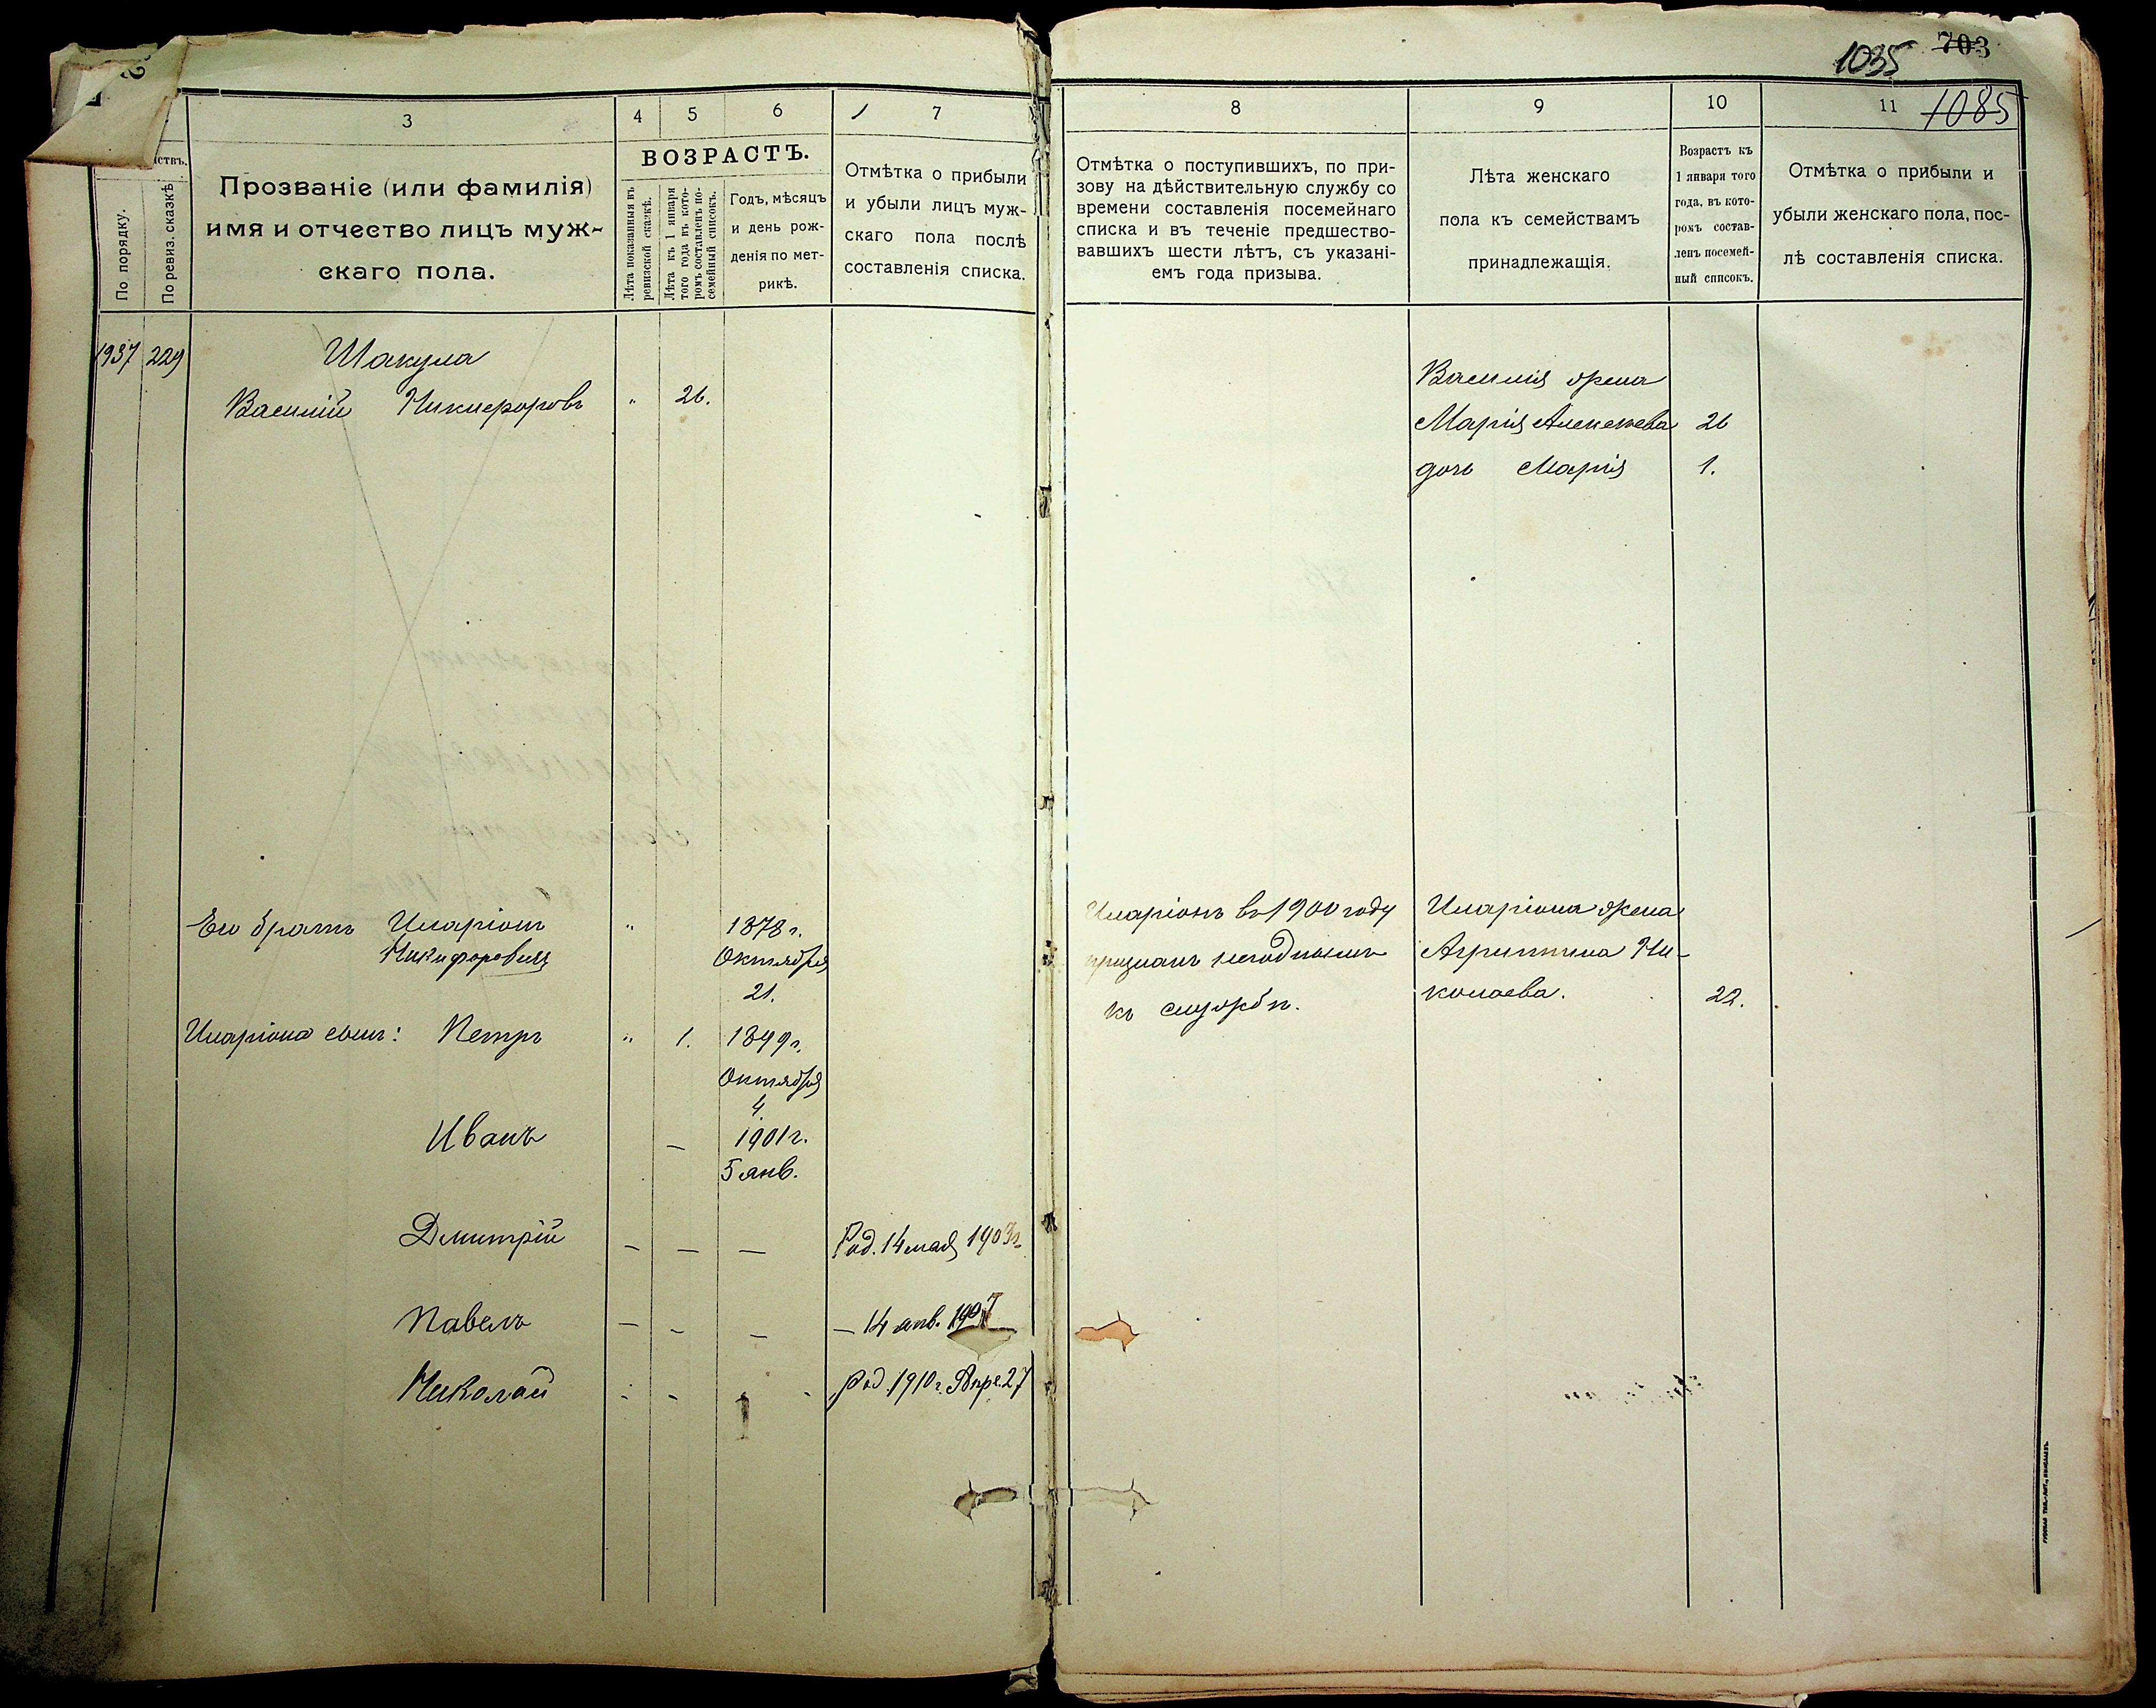 703
1035
1085
3
4
5
6
7
ВОЗРАСТЪ.
По порядку.
По ревиз. сказкѣ
Прозваніе (или фамилія)
имя и отчество лицъ муж-
скаго пола.
Лѣта показанныя въ
ревизской сказкѣ.
Лѣта къ 1 января
того года въ кото-
ромъ составленъ по-
семейный списокъ.
Годъ, мѣсяцъ
и день рож-
денія по мет-
рикѣ.
Отмѣтка о прибыли
и убыли лицъ муж-
скаго пола послѣ
составленія списка.
8
9
10
11
Отмѣтка о поступившихъ, по при-
зову на дѣйствительную службу со
времени составленія посемейнаго
списка и въ теченіе предшество-
вавшихъ шести лѣтъ, съ указані-
емъ года призыва.
Лѣта женскаго
пола къ семействамъ
принадлежащія.
Возрастъ къ
1 января того
года, въ кото-
ромъ состав-
ленъ посемей-
ный списокъ.
Отмѣтка о прибыли и
убыли женскаго пола, пос-
лѣ составленія списка.
1937 229 Шакула
Василій Никифоровъ " 26.
Василія жена
Марія Алексѣева 26
дочь Марія 1.
Его братъ Иларіонъ " 1878 г.
Никифоровичъ Октября
21.
Иларіона сынъ: Петръ " 1. 1899 г.
Октября
4.
Иванъ — 1901 г.
5 янв.
Дмитрій — — — Род. 14 мая 1903 г.
Павелъ — — — — 14 янв. 1907
Николай - - - род. 1910 г. Апре. 27
Иларіонъ въ 1900 году
признанъ негоднымъ
къ службѣ.
Иларіона жена
Агриппина Ни-
колаева. 22.